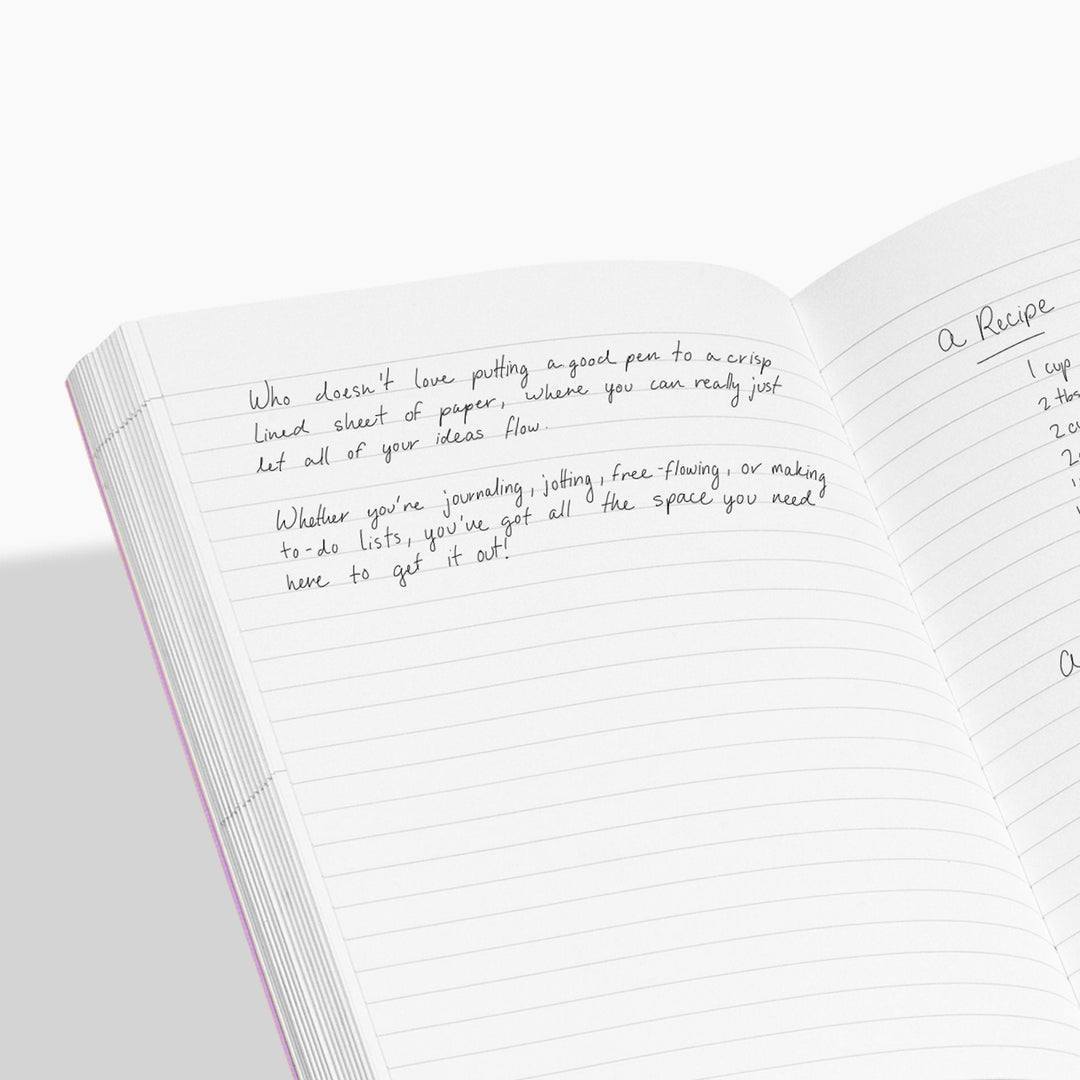 Who doesn't love putting a good pen to a crisp
lined sheet of paper, where you can really just
let all of your ideas flow.
Whether you're journaling, jotting, free-flowing, or making
to-do lists, you've got all the space you need
here to get it out!
a Recipe
1 cup
2 tbs
2 cu
2
1
1
a